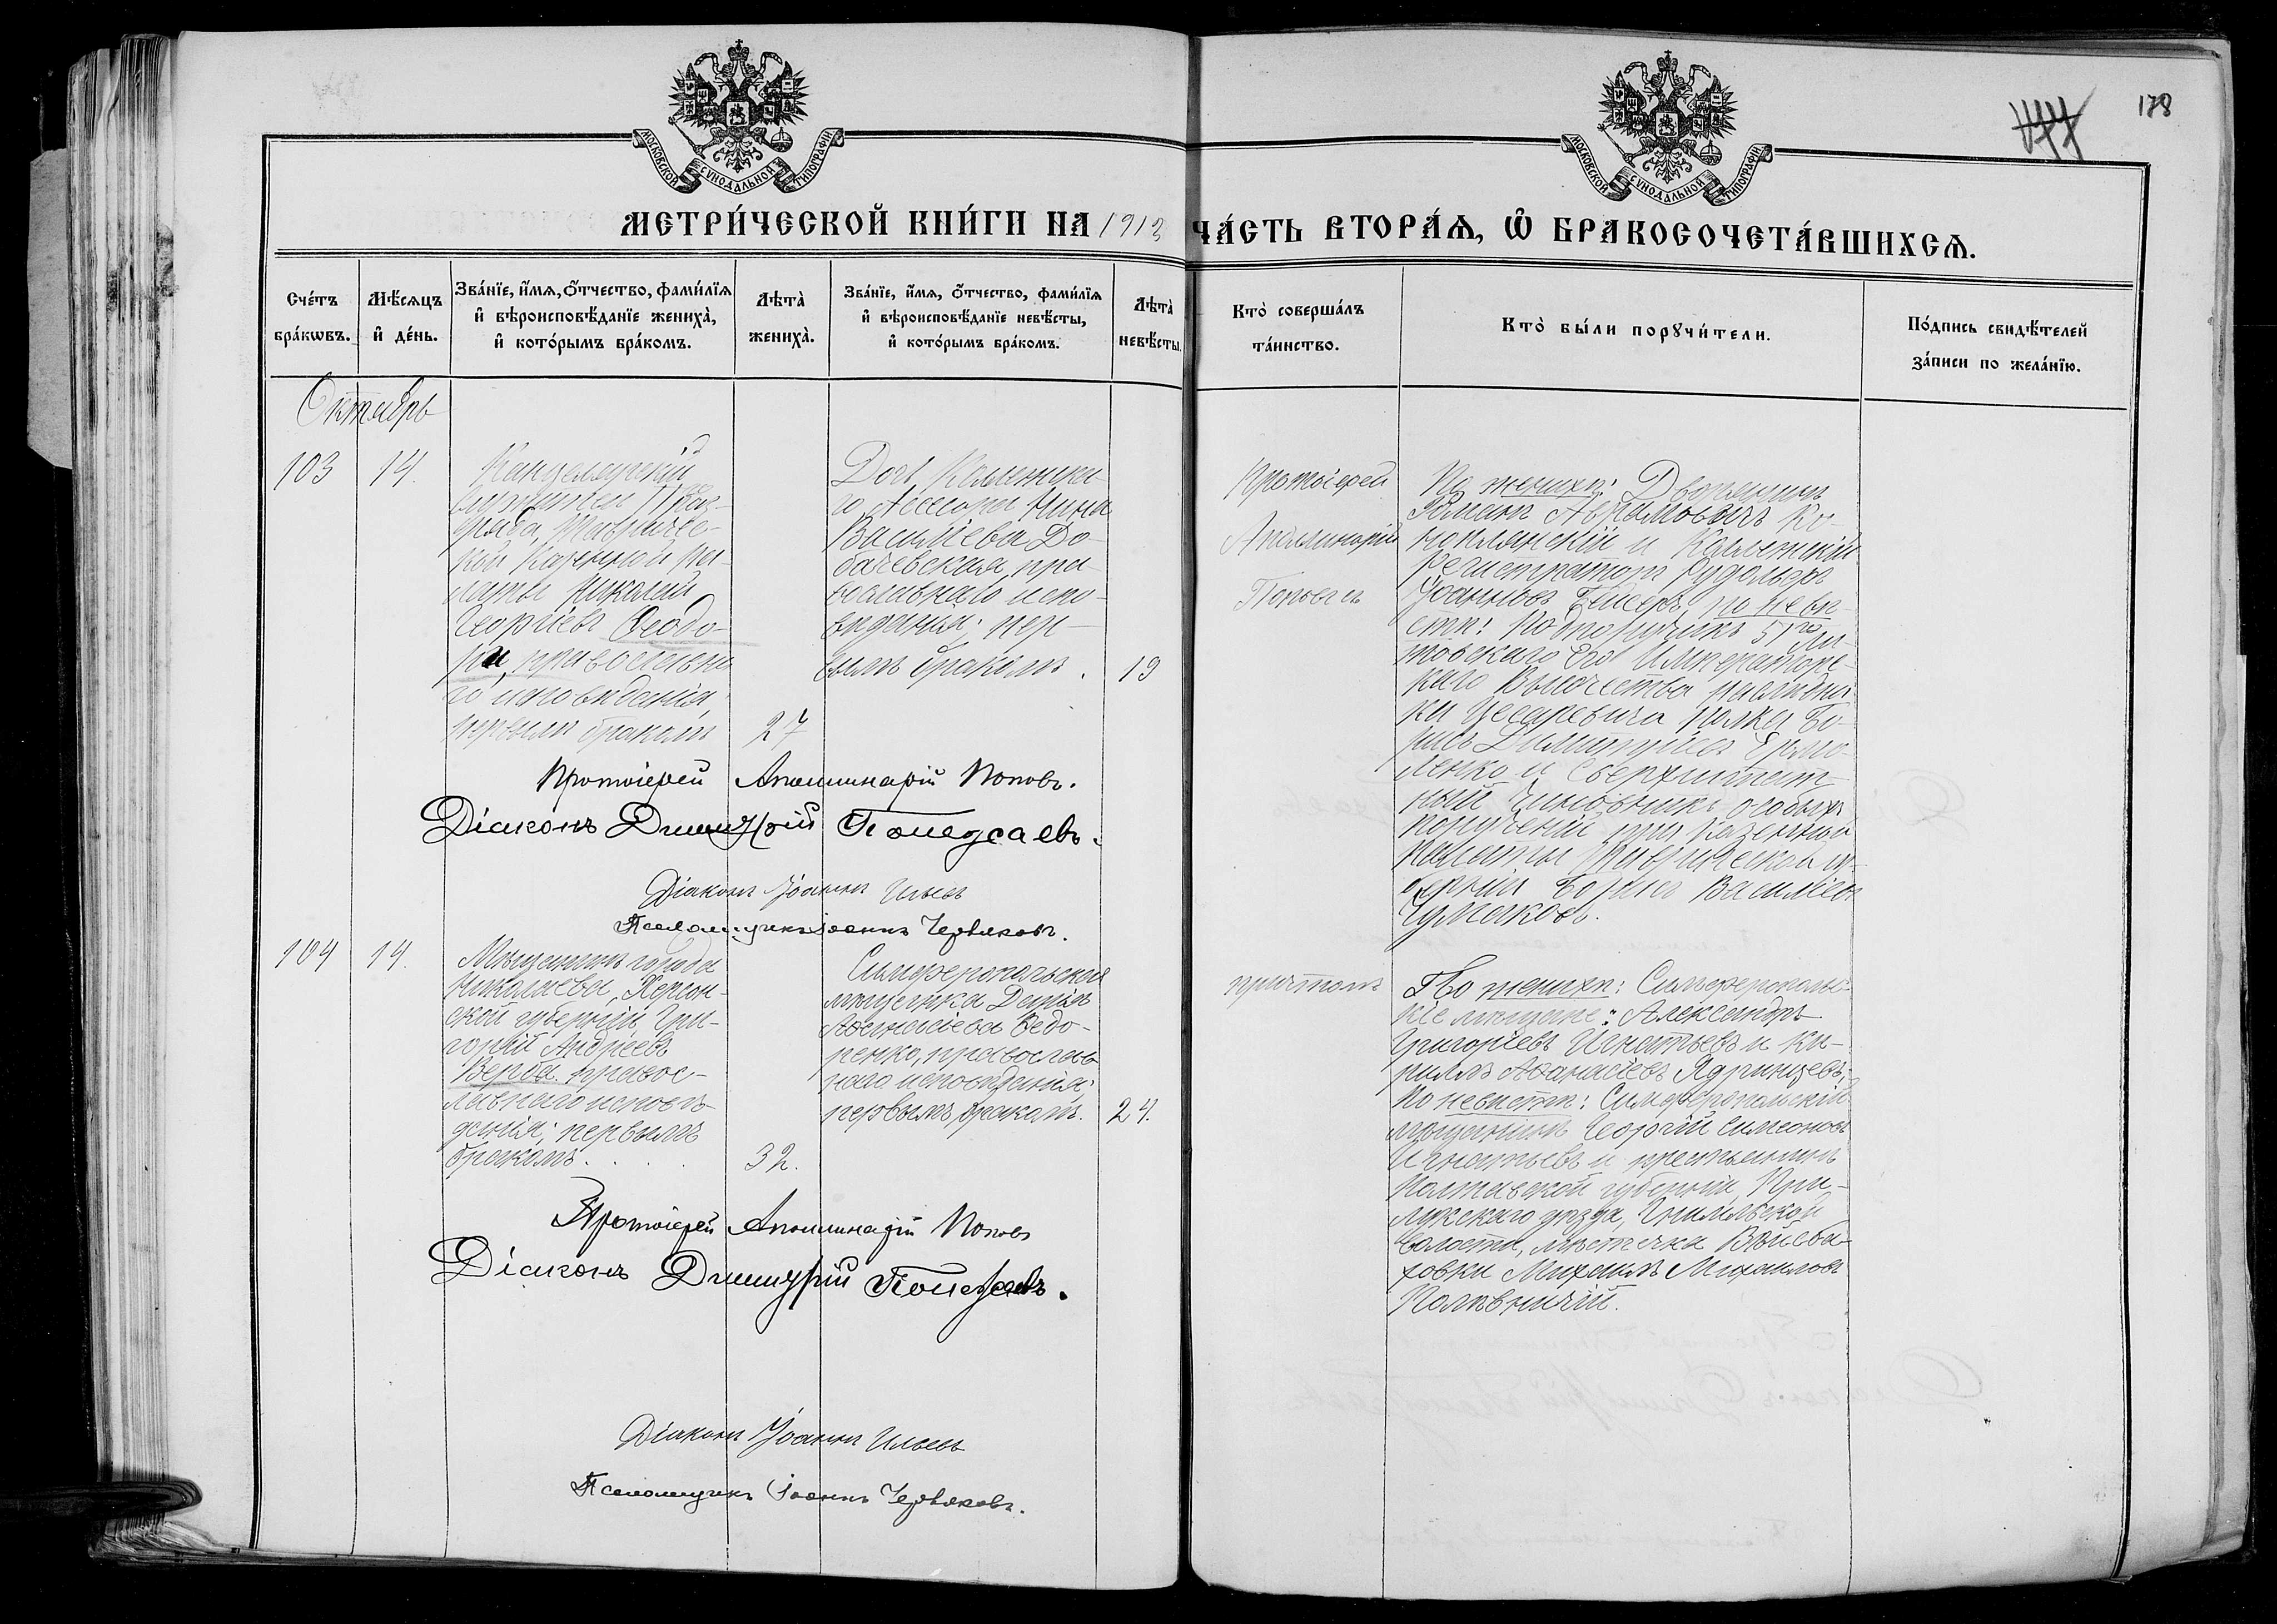 178
МОСКОВСКОЙ СѴНОДАЛЬНОЙ ТИПОГРАФІИ
МОСКОВСКОЙ СѴНОДАЛЬНОЙ ТИПОГРАФІИ
МЕТРИ́ЧЕСКОЙ КНИ́ГИ НА 1913
ЧА́СТЬ ВТОРА́Ѧ, Ѽ БРАКОСОЧЕТА́ВШИХСѦ.
Сче́тъ
бра́кѡвъ.
Мѣ́сѧцъ
и҆ де́нь.
Зва́нїе, и҆́мѧ, ѻ҆́тчество, фами́лїѧ
и҆ вѣроисповѣ́данїе жениха̀,
и҆ кото́рымъ бра́комъ.
Лѣта̀
жениха̀.
Зва́нїе, и҆́мѧ, ѻ҆́тчество, фами́лїѧ
и҆ вѣроисповѣ́данїе невѣ́сты,
и҆ кото́рымъ бра́комъ.
Лѣта̀
невѣ́сты.
Кто̀ соверша́лъ
та́инство.
Кто̀ бы́ли порꙋчи́тели.
По́дпись свидѣ́телей
за́писи по жела́нїю.
Октябрь
103
14.
Канцелярскій
служитель I раз-
ряда, Тавричес-
кой Казенной Па-
латы Николай
Георгіевъ Ѳеодо-
ри, православна-
го исповѣданія,
первымъ бракомъ
27
Дочь Коллежска-
го Ассесора Нина
Васильева До-
бачевская, пра-
вославнаго испо-
вѣданія; пер-
вымъ бракомъ.
19
Протоіерей
Аполлинарій
Поповъ
По женихѣ: Дворянинъ
Романъ Абрамовичъ Ко-
ноплянскій и Коллежскій
Регистраторъ Рудольфъ
Іоанновъ Бейеръ, по невѣ-
стѣ: Подпоручикъ 51го Ли-
товскаго Его Императорс-
каго Высочества наслѣдни-
ка Цесаревича полка Бо-
рисъ Димитріевъ Ермо-
ленко и сверхштат-
ный чиновникъ особыхъ
порученій при Казенной
Палаты Таврической гу-
берніи Борисъ Васильевъ
Чумаковъ.
Протоіерей Аполлинарій Поповъ.
Діаконъ Димитрій
Діаконъ Іоаннъ Ильевъ
Псаломщикъ Іоаннъ Червяковъ.
104
14.
Мѣщанинъ города
Николаева, Херсон-
ской губерніи, Гри-
горій Андреевъ
Верба, правос-
лавнаго исповѣ-
данія; первымъ
бракомъ.
32.
Симферопольская
мѣщанка Дарія
Аѳанасіева Ѳедо-
ренко, православ-
наго исповѣданія;
первымъ бракомъ.
24.
причтомъ
По женихѣ: Симферопольс-
кіе мѣщане: Александръ
Григоріевъ Игнатьевъ и Ки-
риллъ Аѳанасіевъ Ядринцевъ;
По невѣстѣ: Симферопольскій
мѣщанинъ Георгій Симеоновъ
Игнатьевъ и крестьянинъ
Полтавской губерніи, При-
лукскаго уѣзда,
волости, мѣстечка
Михаилъ Михайловъ
Протоіерей Аполлинарій Поповъ
Діаконъ Димитрій
Діаконъ Іоаннъ Ильевъ
Псаломщикъ Іоаннъ Червяковъ.